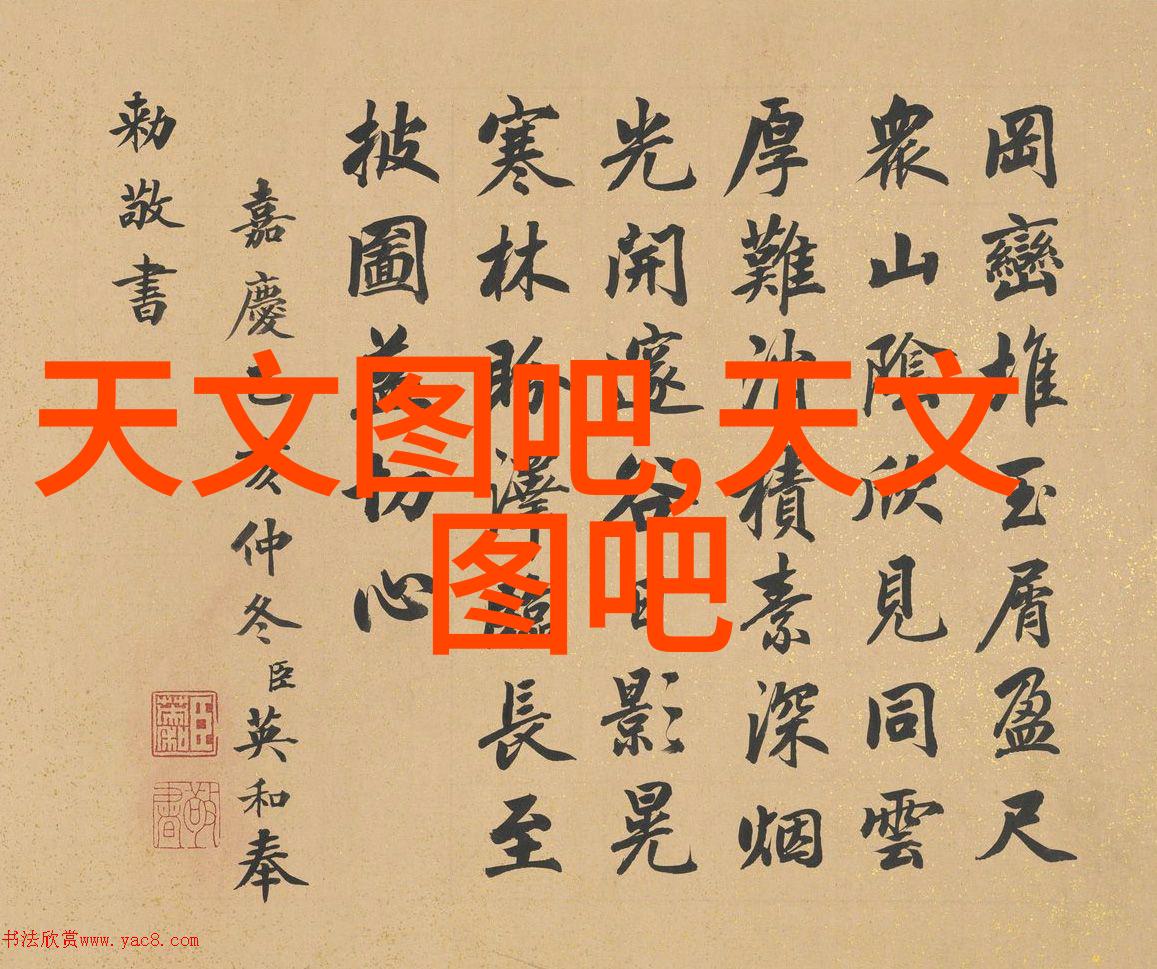 岡巒堆玉屑盈尺
衆山陰欣見同雲
厚難積素深烟
光開邃谷影晃
寒林盼澤臨長至
披圖益切心
嘉慶亥仲冬臣英和奉
勅敬書
天文图吧,天文
图吧
书法欣赏www.yac8.com